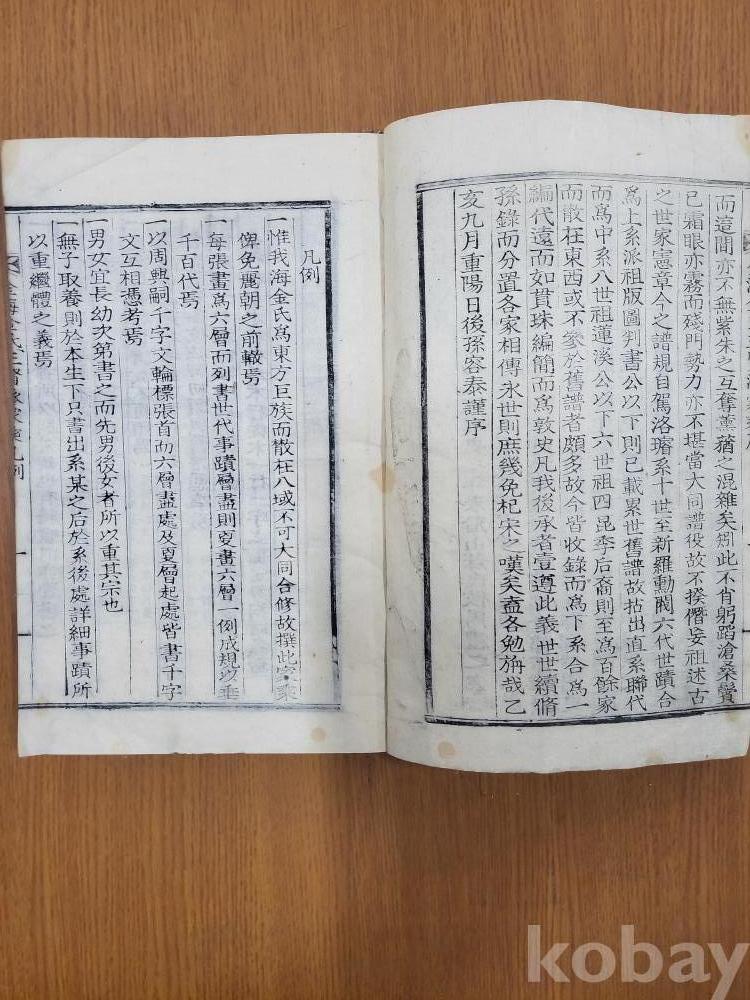 而這間亦不無紫朱之互奪薰蕕之混雜矣矧此不肖躬蹈滄桑鬢
已霜眼亦霧而殘門勢力亦不堪當大同譜役故不揆僭妄祖述古
之世家憲章今之譜規自駕洛璿系十世至新羅勳閥六代世蹟合
爲上系派祖版圖判書公以下則已載累世舊譜故拈出直系聯代
而爲中系八世祖蓮溪公以下六世祖四昆季后裔則至爲百餘家
而散在東西或不參於舊譜者頗多故今皆收錄而爲下系合爲一
編代遠而如貫珠編簡而爲敦史凡我後承者壹遵此義世世續脩
孫錄而分置各家相傳永世則庶幾免杞宋之嘆矣盍各勉旃哉乙
亥九月重陽日後孫容泰謹序
凡例
一惟我海金氏爲東方巨族而散在八域不可大同合修故撰此家乘
俾免麗朝之前轍焉
一每張畫爲六層而列書世代事蹟層盡則更畫六層一例成規以垂
千百代焉
一以周興嗣千字文輪標張首而六層盡處及更層起處皆書千字
文互相憑考焉
一男女宜長幼次第書之而先男後女者所以重其宗也
一無子取養則於本生下只書出系某之后於系後處詳細事蹟所
以重繼體之義焉
凡例
kobay